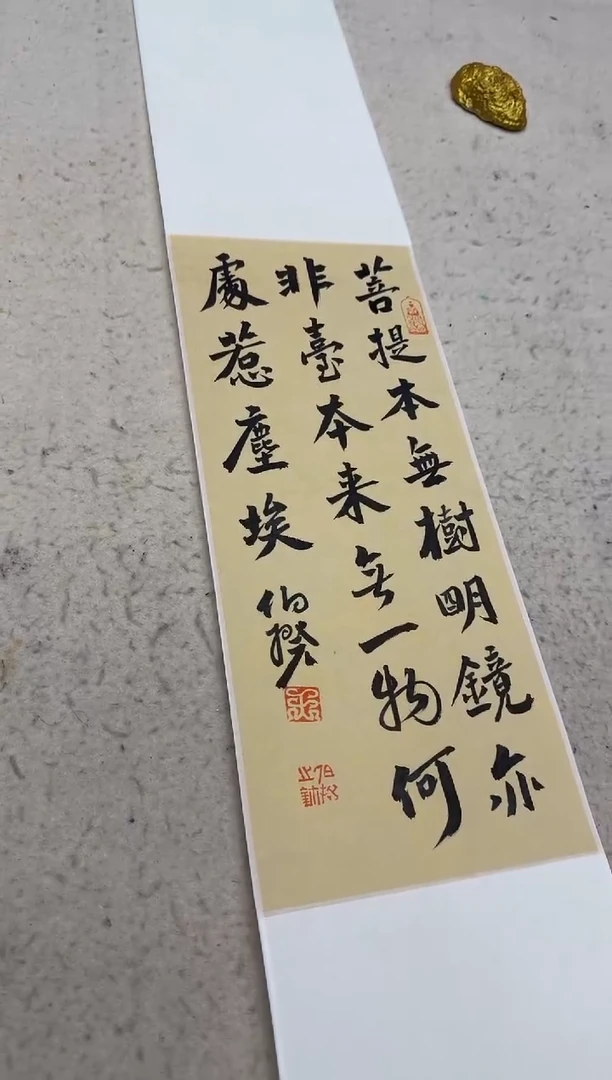 菩提本無樹明鏡亦
非臺本来無一物何
處惹塵埃
伯揆